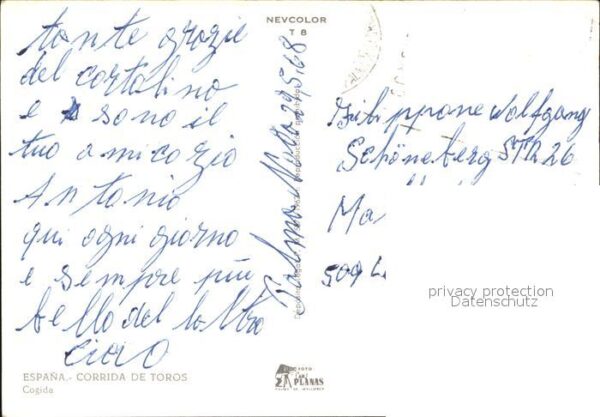 NEVCOLOR
T 8
tante grazie
del cartolino
e sono il
tuo amico zio
Antonio
qui ogni giorno
e sempre piu
bello del laltro
ciao
Palma Nuda 29,5,68
Wolfgang
Schöneberg STR 26
Ma
509 L
privacy protection
Datenschutz
ESPAÑA.- CORRIDA DE TOROS
Cogida
FOTO
PLANAS